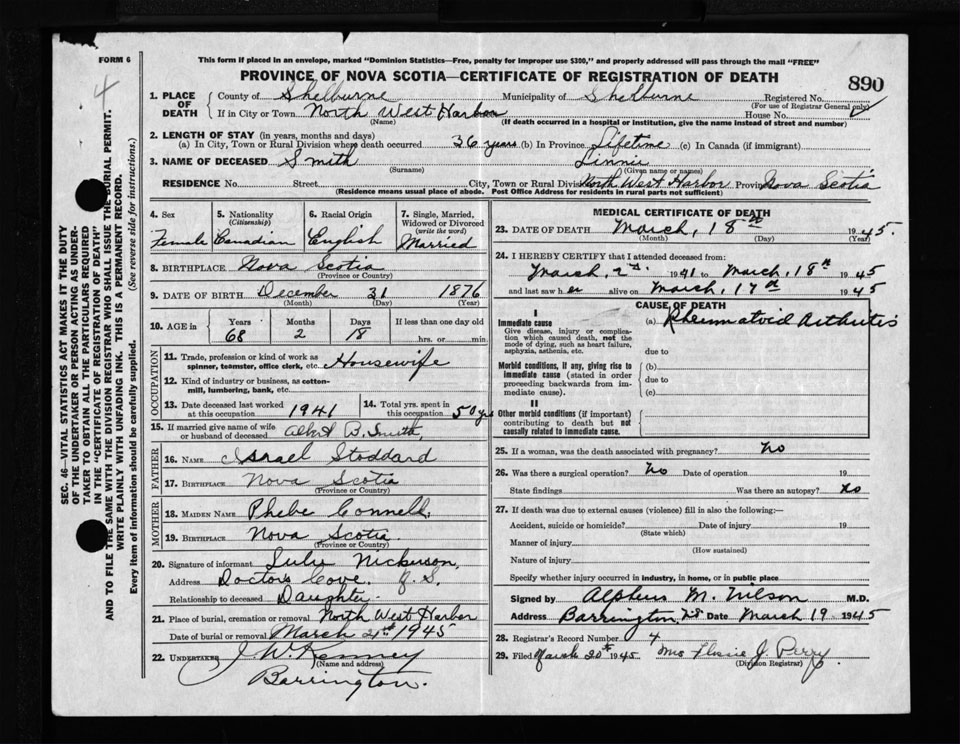 FORM 6
This form if placed in an envelope, marked "Dominion Statistics—Free, penalty for improper use $300," and properly addressed will pass through the mail "FREE"
PROVINCE OF NOVA SCOTIA—CERTIFICATE OF REGISTRATION OF DEATH
890
4
1. PLACE OF DEATH
County of Shelburne Municipality of Shelburne Registered No.
(For use of Registrar General only)
If in City or Town North West Harbor House No.
(Name) (If death occurred in a hospital or institution, give the name instead of street and number)
2. LENGTH OF STAY (in years, months and days)
(a) In City, Town or Rural Division where death occurred 36 years (b) In Province Lifetime (c) In Canada (if immigrant)
3. NAME OF DECEASED Smith Linnie
(Surname) (Given name or names)
RESIDENCE No. Street City, Town or Rural Division North West Harbor Province Nova Scotia
(Residence means usual place of abode. Post Office Address for residents in rural parts not sufficient)
4. Sex Female
5. Nationality (Citizenship) Canadian
6. Racial Origin English
7. Single, Married, Widowed or Divorced (write the word) Married
8. BIRTHPLACE Nova Scotia
(Province or Country)
9. DATE OF BIRTH December 31 1876
(Month) (Day) (Year)
10. AGE in Years 68 Months 2 Days 18 If less than one day old hrs. or min.
OCCUPATION
11. Trade, profession or kind of work as spinner, teamster, office clerk, etc. Housewife
12. Kind of industry or business, as cotton-mill, lumbering, bank, etc.
13. Date deceased last worked at this occupation 1941
14. Total yrs. spent in this occupation 50 yrs
15. If married give name of wife or husband of deceased Albert B. Smith,
FATHER
16. NAME Israel Stoddard
17. BIRTHPLACE Nova Scotia
(Province or Country)
MOTHER
18. MAIDEN NAME Phebe Connell,
19. BIRTHPLACE Nova Scotia.
(Province or Country)
20. Signature of informant Nickerson,
Address Doctors Cove.
Relationship to deceased Daughter.
21. Place of burial, cremation or removal North West Harbor
Date of burial or removal March 21st 1945
22. UNDERTAKER J. W. Kenney
(Name and address)
Barrington.
MEDICAL CERTIFICATE OF DEATH
23. DATE OF DEATH March, 18th 1945.
(Month) (Day) (Year)
24. I HEREBY CERTIFY that I attended deceased from:
March, 2nd. 1941 to March, 18th 1945
and last saw her alive on March, 17th 1945
CAUSE OF DEATH
I
Immediate cause (a) Rheumatoid Arthritis
Give disease, injury or complication which caused death, not the mode of dying, such as heart failure, asphyxia, asthenia, etc.
due to
Morbid conditions, if any, giving rise to immediate cause (stated in order proceeding backwards from immediate cause).
(b)
due to
(c)
II
Other morbid conditions (if important) contributing to death but not causally related to immediate cause.
25. If a woman, was the death associated with pregnancy? No
26. Was there a surgical operation? No Date of operation 19
State findings Was there an autopsy? No
27. If death was due to external causes (violence) fill in also the following:—
Accident, suicide or homicide? Date of injury 19
(State which)
Manner of injury
(How sustained)
Nature of injury
Specify whether injury occurred in industry, in home, or in public place
Signed by M. Wilson M.D.
Address Barrington N.S. Date March 19 1945
28. Registrar's Record Number 4
29. Filed March 20th 1945 Mrs Flossie J. Perry
(Division Registrar)
SEC. 46—VITAL STATISTICS ACT MAKES IT THE DUTY
OF THE UNDERTAKER OR PERSON ACTING AS UNDER-
TAKER TO OBTAIN ALL THE PARTICULARS REQUIRED
IN THE "CERTIFICATE OF REGISTRATION OF DEATH"
AND TO FILE THE SAME WITH THE DIVISION REGISTRAR WHO SHALL ISSUE THE BURIAL PERMIT.
WRITE PLAINLY WITH UNFADING INK. THIS IS A PERMANENT RECORD.
Every item of information should be carefully supplied. (See reverse side for instructions.)